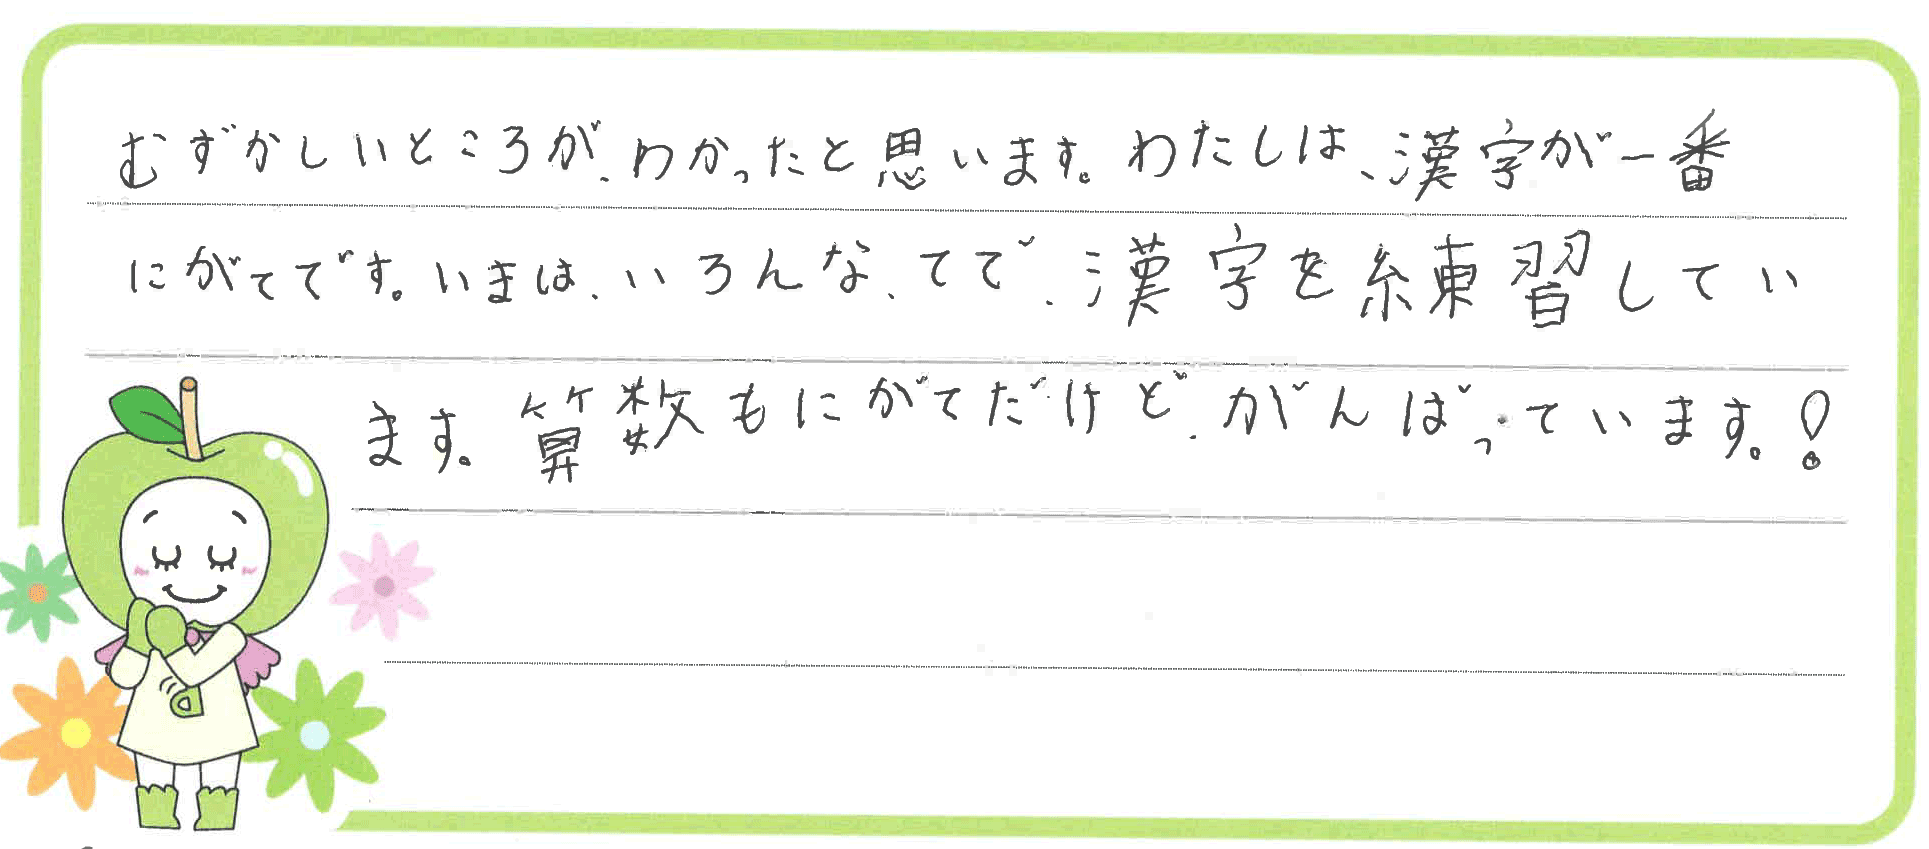 むずかしいところが、わかったと思います。わたしは、漢字が一番
にがてです。いまは、いろんな、てで、漢字を練習してい
ます。算数もにがてだけど、がんばっています。!